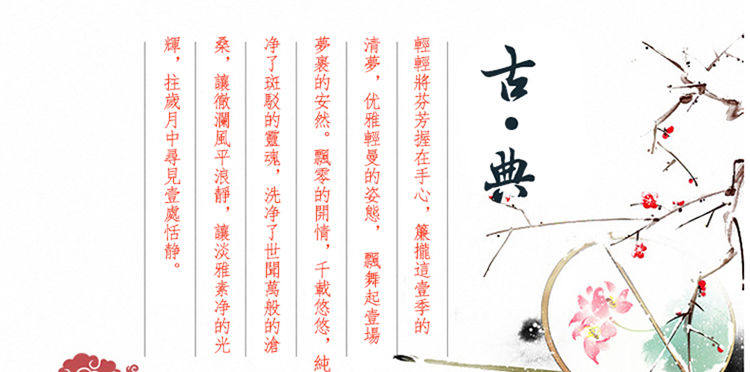 古·典
輕輕將芬芳握在手心，簾攏這壹季的
清夢，优雅輕曼的姿態，飄舞起壹場
夢裏的安然。飄零的開情，千載悠悠，純
净了斑駁的靈魂，洗净了世聞萬般的滄
桑，讓微瀾風平浪靜，讓淡雅素净的光
輝，拄歲月中尋見壹處恬静。